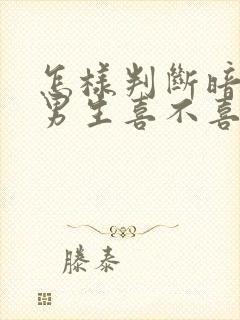 怎樣判斷暗
男生喜不喜
滕泰